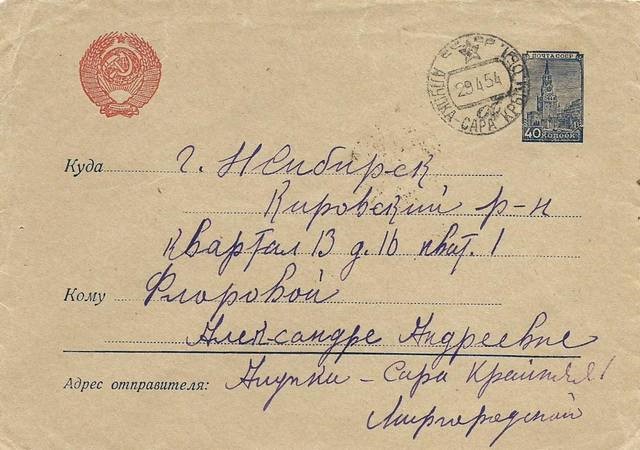 ПОЧТА СССР
40 КОПЕЕК
СССР
29.4.54
АЛУПКА-САРА КРЫМ. ОБЛ.
Куда г. НСибирск
Кировский р-н
Квартал 13 д. 16 кват. 1
Кому Флоровой
Александре Андреевне
Адрес отправителя: Алупка - Сара
Миргородской